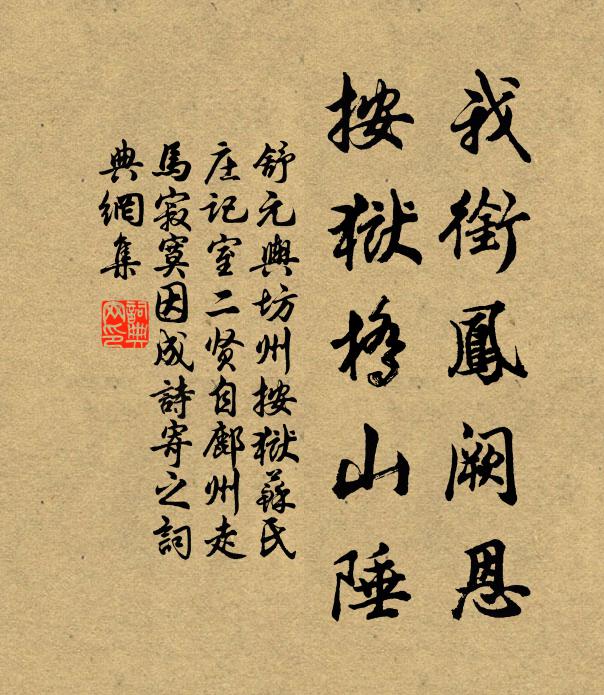 我銜鳳阙恩
按獄橋山陲
舒元輿坊州按獄蘇氏
庄記室二贤自鄜州走
馬寂寞因成詩寄之詞
典網集
詞典
网印